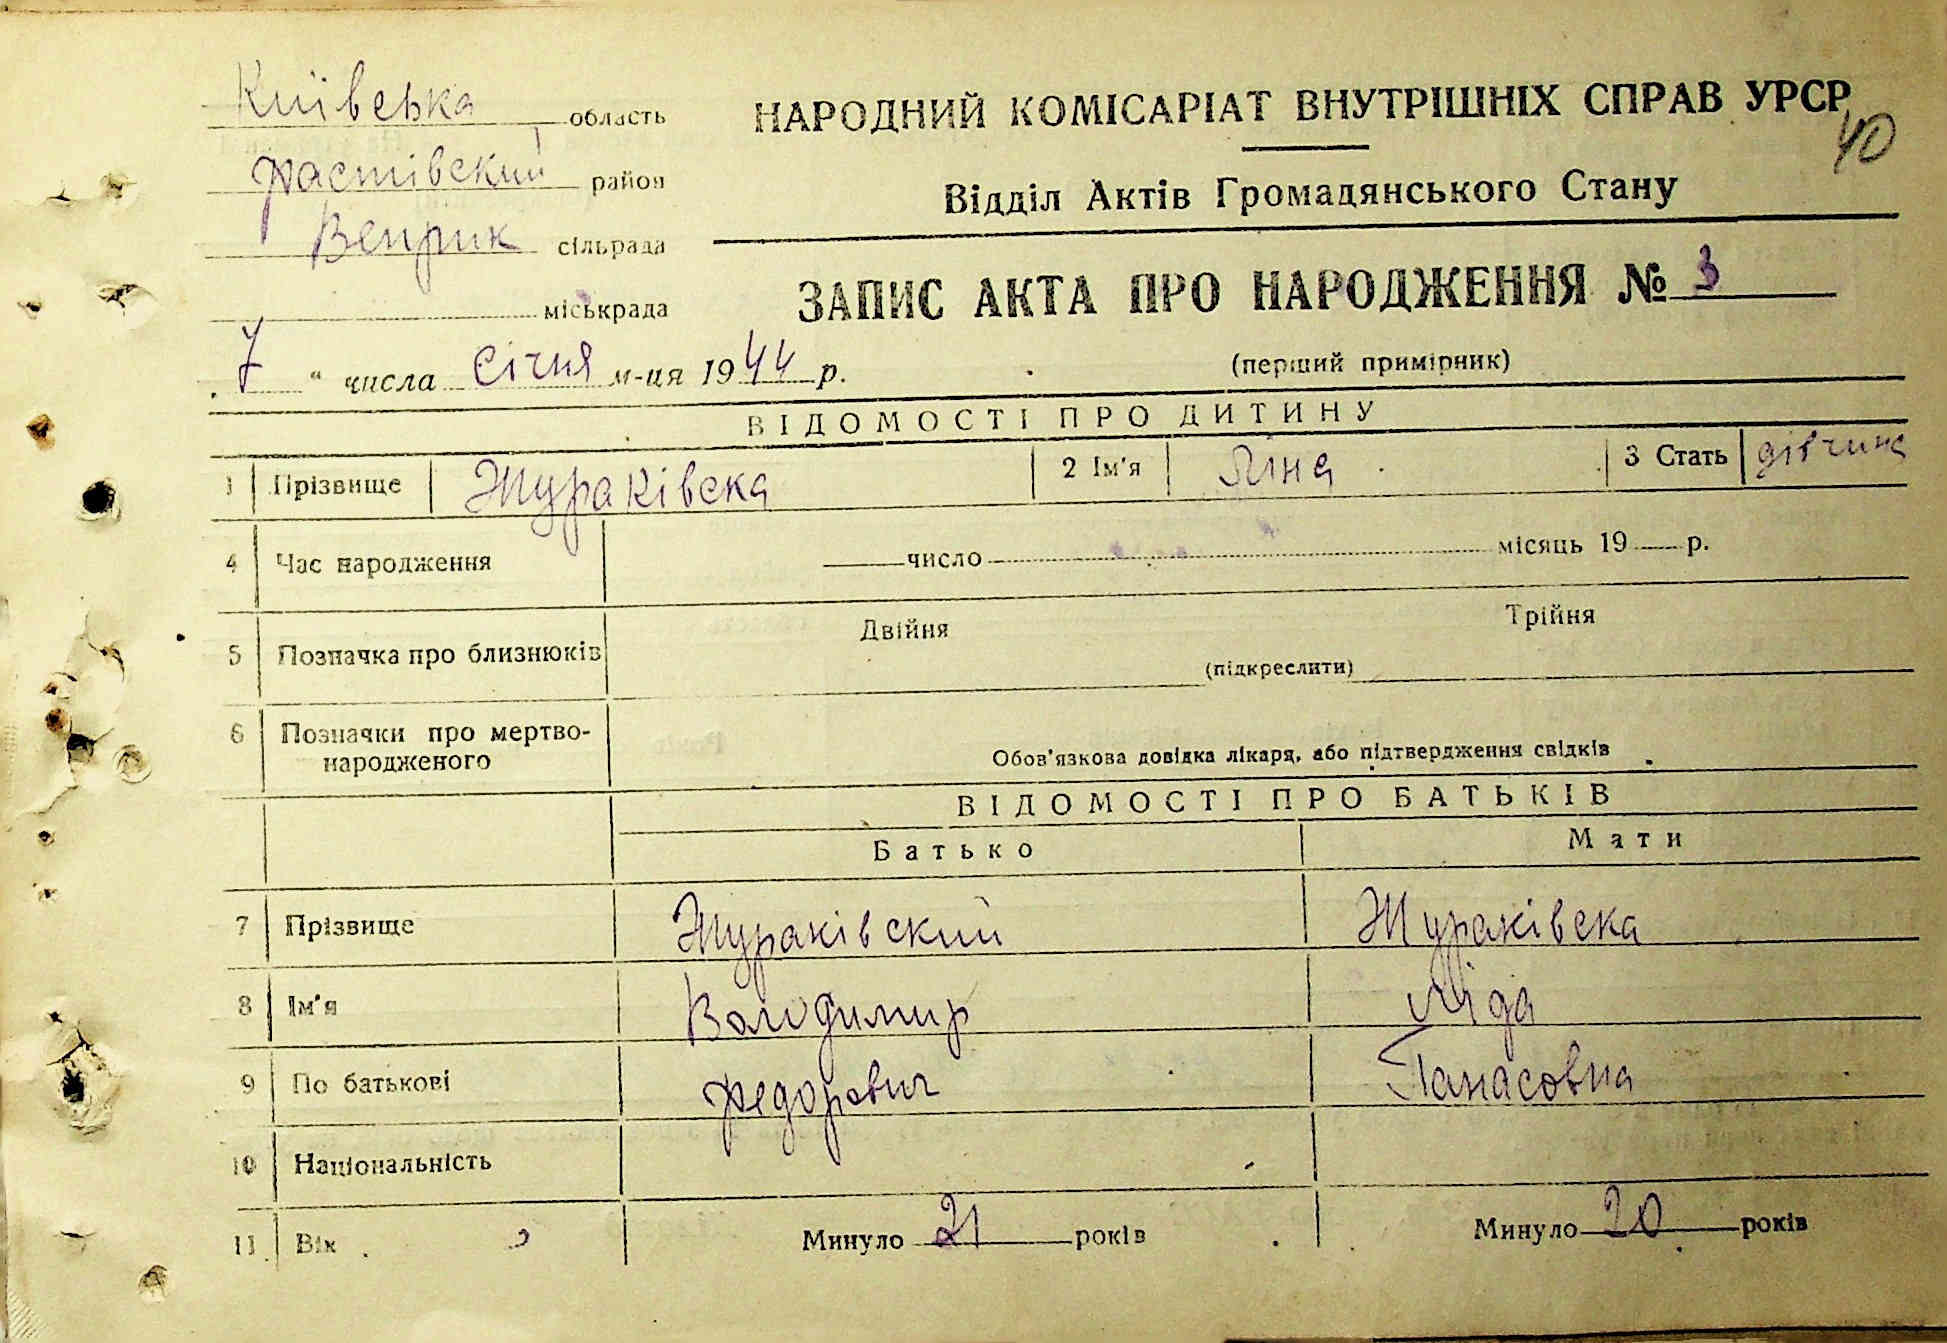 Київська область
НАРОДНИЙ КОМІСАРІАТ ВНУТРІШНІХ СПРАВ УРСР
40
Фастівський район
Відділ Актів Громадянського Стану
Веприк сільрада
ЗАПИС АКТА ПРО НАРОДЖЕННЯ № 3
міськрада
(перший примірник)
7 " числа січня м-ця 1944 р.
ВІДОМОСТІ ПРО ДИТИНУ
1 Прізвище Жураківська 2 Ім'я 3 Стать дівчина
4 Час народження число місяць 19 р.
5 Позначка про близнюків Двійня Трійня
(підкреслити)
6 Позначки про мертво-
народженого Обов'язкова довідка лікаря, або підтвердження свідків
ВІДОМОСТІ ПРО БАТЬКІВ
Батько Мати
7 Прізвище Жураківский Жураківска
8 Ім'я Володимир Ліда
9 По батькові Федорович Панасовна
10 Національність
11 Вік Минуло 21 років Минуло 20 років